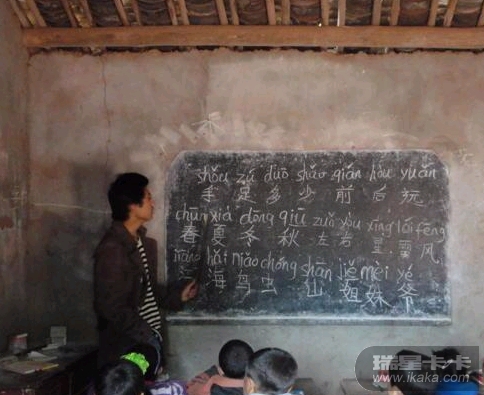 shǒu zú duō shǎo qián hòu yuǎn
手 足 多 少 前 后 远
chūn xià dōng qiū zuǒ yòu xīng léi fēng
春 夏 冬 秋 左 右 星 雷 风
hǎi niǎo chóng shān jiě mèi yé
海 鸟 虫 山 姐 妹 爷
瑞星卡卡
www.ikaka.com